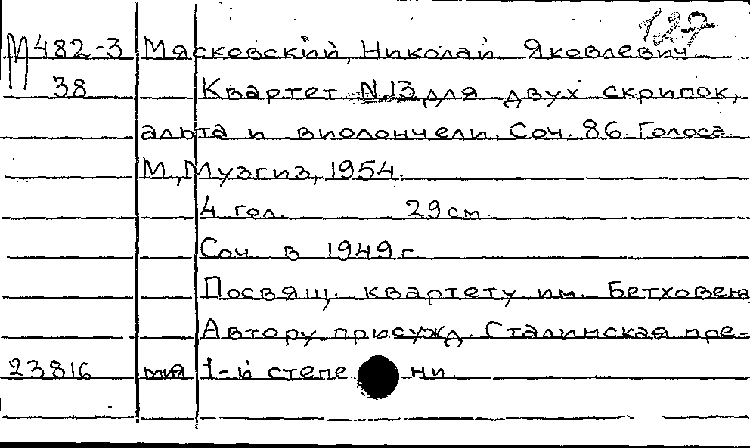 127
М482-3 Мясковский, Николай Яковлевич
38 Квартет N.13 для двух скрипок,
альта и виолончели. Соч. 86. Голоса
М., Музгиз, 1954.
4 гол. 29 см
Соч. в 1949 г
Посвящ. квартету им. Бетховена
Автору присужд. Сталинская пре-
23816 мия 1-й степе ни